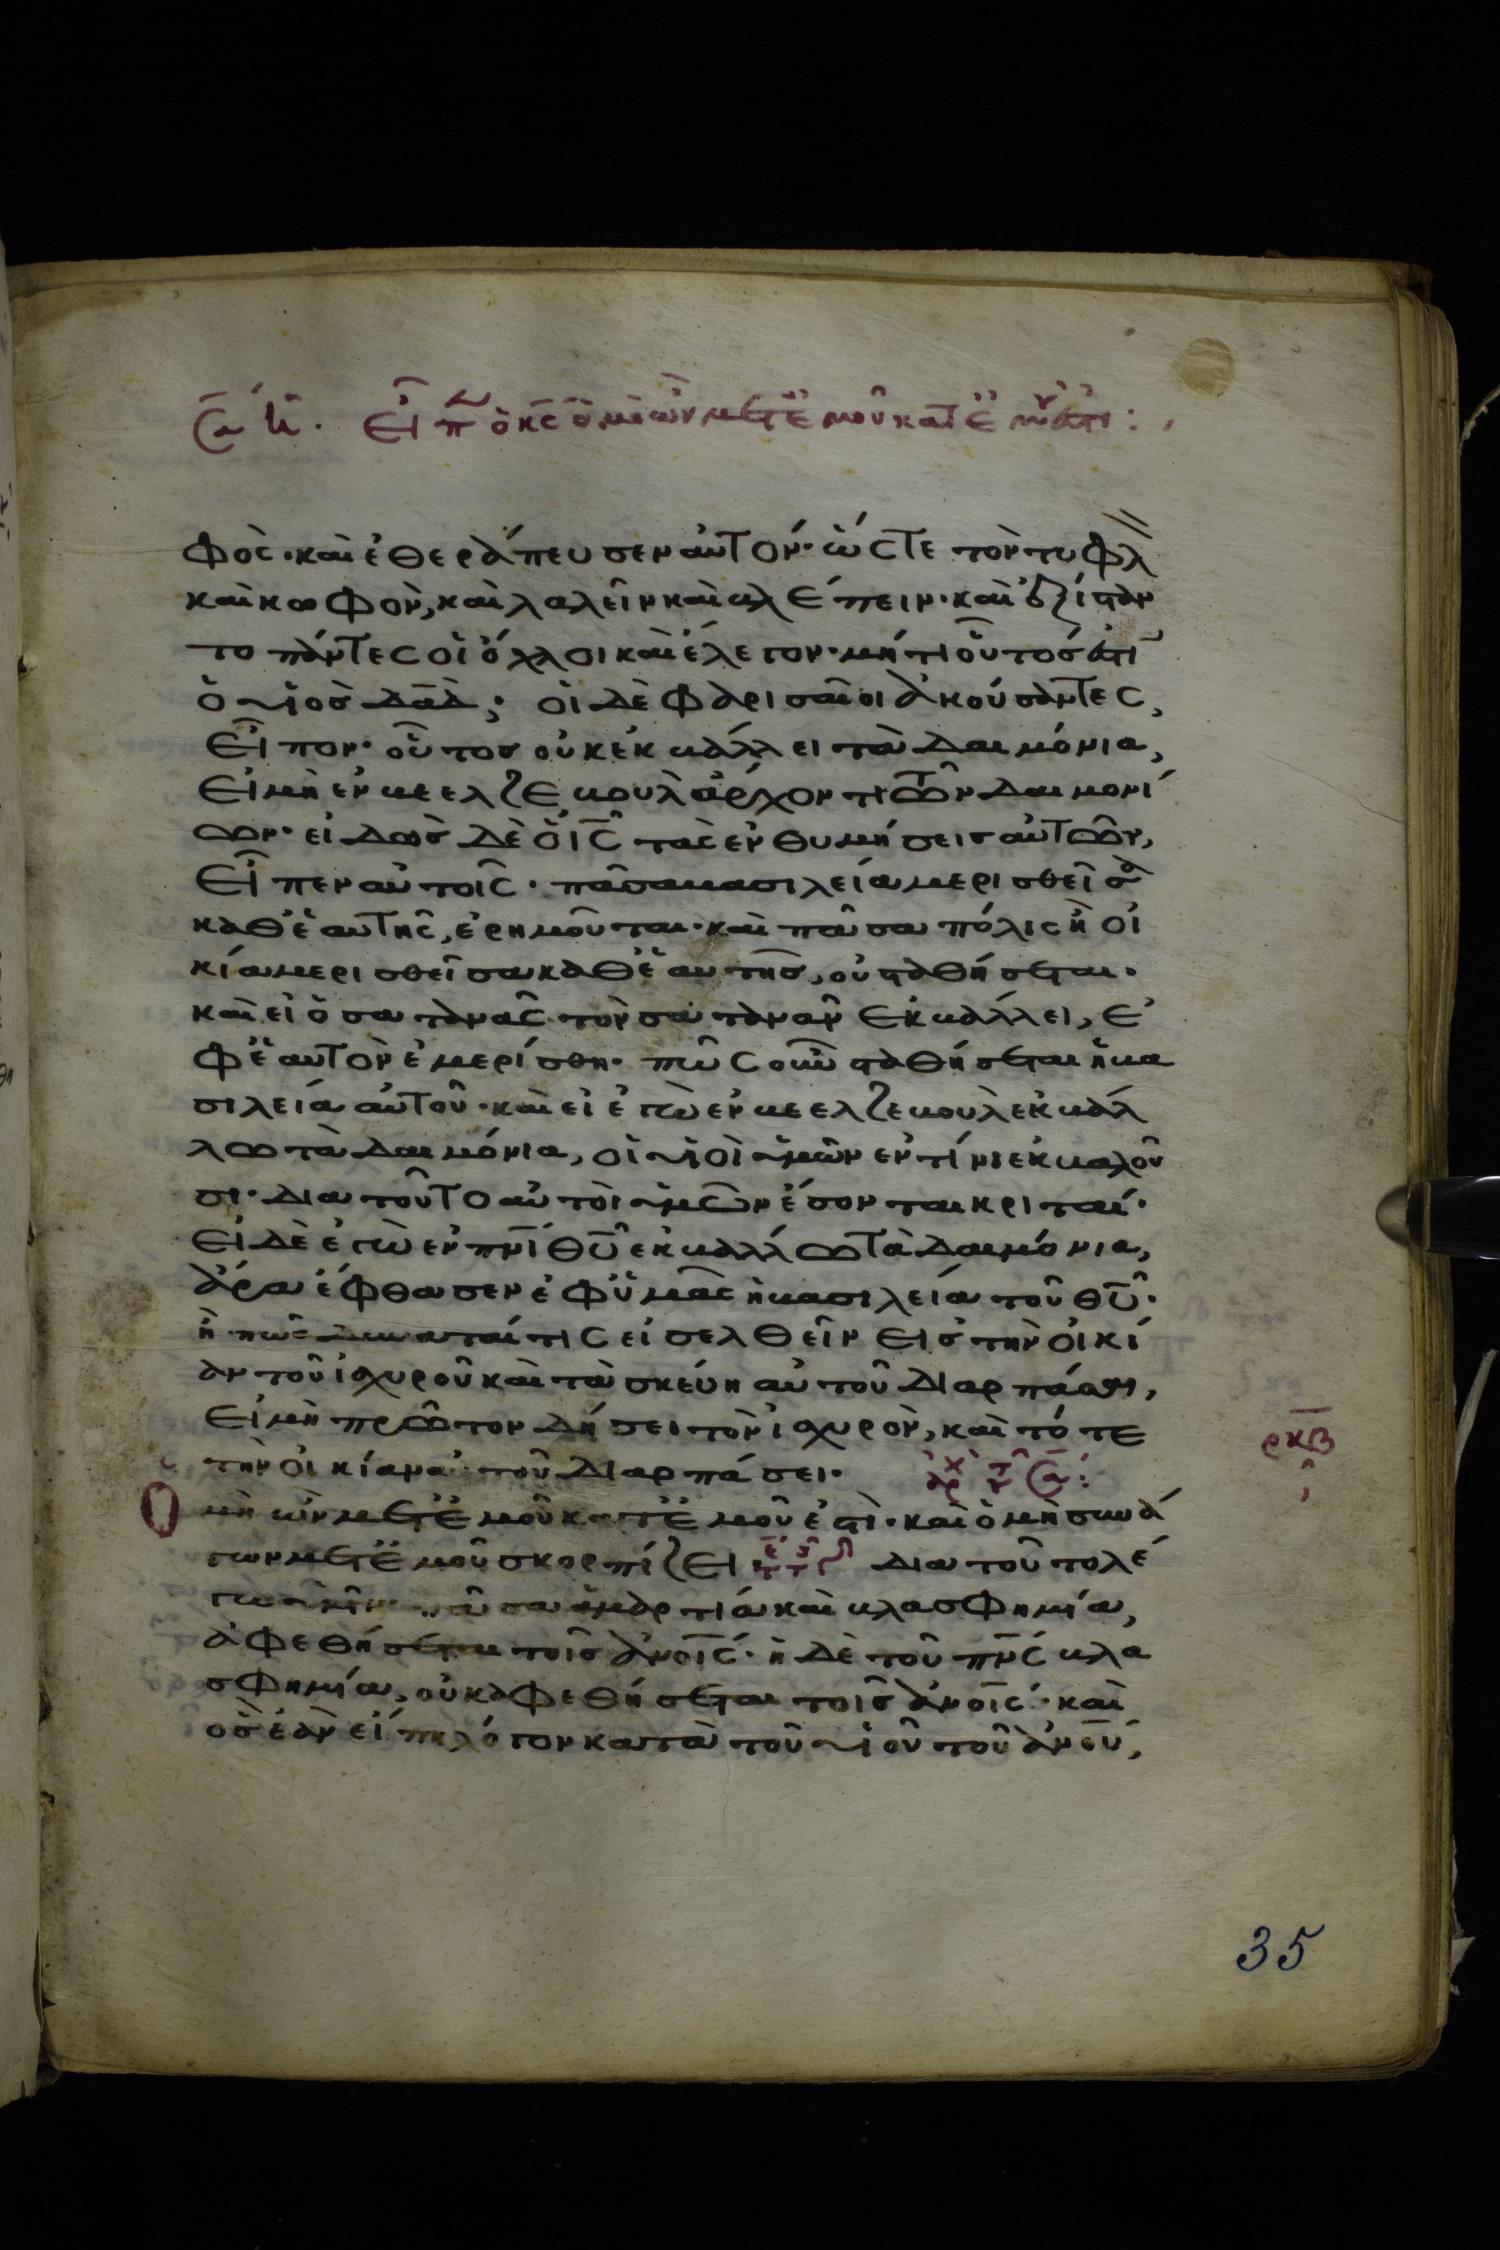 εἶπ ὁ κς ὁ μὴ ὢν μετ ἐμοῦ κατ ἐμοῦ ἐστι:
φὸς· καὶ ἐθεράπευσεν αὐτόν· ὥστε τὸν τυφλ
καὶ κωφὸν, καὶ λαλεῖν καὶ βλέπειν· καὶ ἐξίσταν
το πάντες οἱ ὄχλοι καὶ ἔλεγον· μήτι οὗτός ἐστι
ὁ υἱὸς δαδ; οἱ δὲ φαρισαῖοι ἀκούσαντες,
εἶπον· οὗτος οὐκ ἐκβάλλει τὰ δαιμόνια,
εἰ μὴ ἐν βεελζεβοὺλ ἄρχοντι τῶν δαιμονί
ων· εἰδὼς δὲ ὁ ις τὰς ἐνθυμήσεις αὐτῶν,
εἶπεν αὐτοῖς· πᾶσα βασιλεία μερισθεῖσα
καθ ἑαυτῆς, ἐρημοῦται· καὶ πᾶσα πόλις ἢ οἰ
κία μερισθεῖσα καθ ἑαυτῆς, οὐ σταθήσεται·
καὶ εἰ ὁ σατανᾶς τὸν σατανᾶν ἐκβάλλει, ἐ
φ ἑαυτὸν ἐμερίσθη· πῶς οὖν σταθήσεται ἡ βα
σιλεία αὐτοῦ· καὶ εἰ ἐγὼ ἐν βεελζεβοὺλ ἐκβάλ
λω τὰ δαιμόνια, οἱ υἱοὶ ὑμῶν ἐν τίνι ἐκβαλοῦ
σι· διατοῦτο αὐτοὶ ὑμῶν ἔσονται κριταί·
εἰ δὲ ἐγὼ ἐν πνι θυ ἐκβάλλω τὰ δαιμόνια,
ἄρα ἔφθασεν ἐφ ὑμᾶς ἡ βασιλεία τοῦ θυ·
ἢ πῶς δύναταί τις εἰσελθεῖν εἰς τὴν οἰκί
αν τοῦ ἰσχυροῦ καὶ τὰ σκεύη αὐτοῦ διαρπάσαι,
εἰ μὴ πρῶτον δήσει τὸν ἰσχυρὸν, καὶ τότε
τὴν οἰκίαν αὐτοῦ διαρπάσει·
ρκβ
Ο μὴ ὢν μετ ἐμοῦ κατ ἐμοῦ ἐστι· καὶ ὁ μὴ συνά
γων μετ ἐμοῦ σκορπίζει· διατοῦτο λέ
γω ὑμῖν· πᾶσα ἁμαρτία καὶ βλασφημία,
ἀφεθήσεται τοῖς ἀνοις· ἡ δὲ τοῦ πνς βλα
σφημία, οὐκ ἀφεθήσεται τοῖς ἀνοις· καὶ
ὃς ἐὰν εἴπῃ λόγον κατὰ τοῦ υἱοῦ τοῦ ἀνου,
35